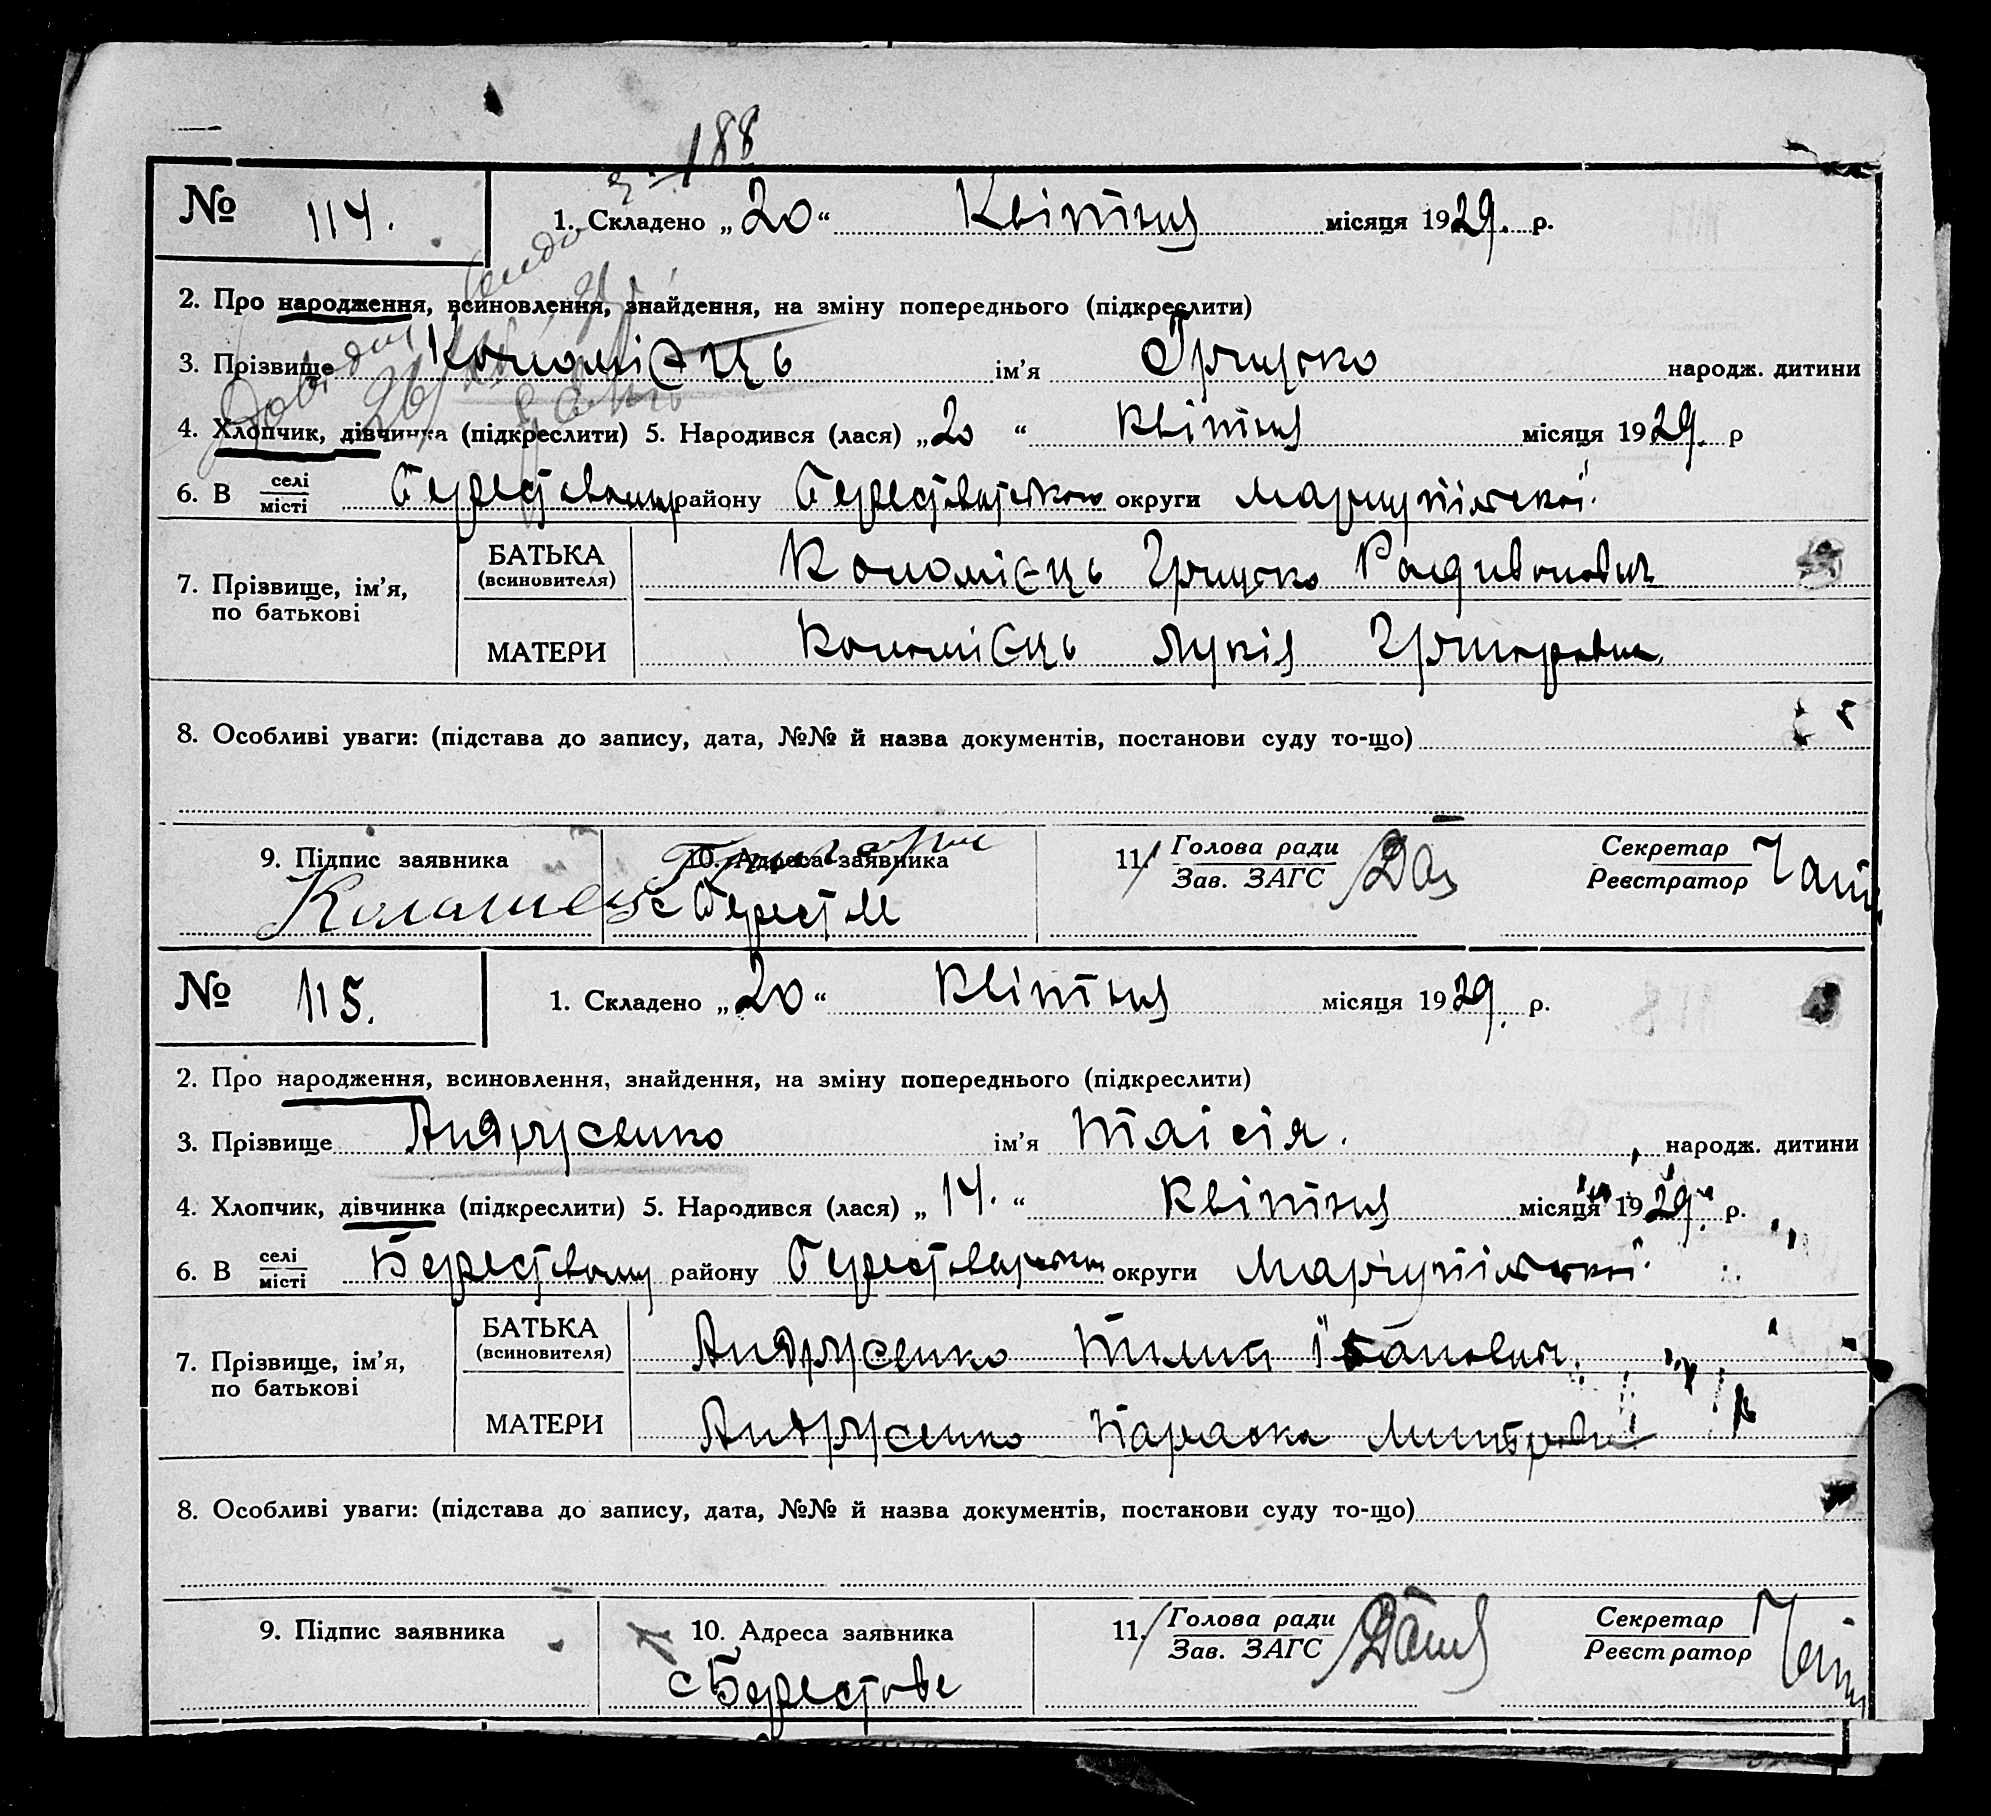 188
№ 114. 1. Складено „20“ Квітня місяця 1929. р.
2. Про народження, всиновлення, знайдення, на зміну попереднього (підкреслити)
3. Прізвище Коломієць ім'я Грицько народж. дитини
4. Хлопчик, дівчинка (підкреслити) 5. Народився (лася) „20“ Квітня місяця 1929. р
6. В селі/місті Берестовому району Берестовського округи Маріупільської
7. Прізвище, ім'я, по батькові
БАТЬКА (всиновителя) Коломієць Грицько Радивонович
МАТЕРИ Коломієць Лукія Григоровна
8. Особливі уваги: (підстава до запису, дата, №№ й назва документів, постанови суду то-що)
9. Підпис заявника 10. Адреса заявника 11. Голова ради/Зав. ЗАГС Секретар/Реєстратор
Коломиец Григорий с Берестве
№ 115. 1. Складено „20“ Квітня місяця 1929. р.
2. Про народження, всиновлення, знайдення, на зміну попереднього (підкреслити)
3. Прізвище Андрусенко ім'я Таісія. народж. дитини
4. Хлопчик, дівчинка (підкреслити) 5. Народився (лася) „14.“ Квітня місяця 1929. р.
6. В селі/місті Берестовому району Берестовського округи Маріупільської
7. Прізвище, ім'я, по батькові
БАТЬКА (всиновителя) Андрусенко Пилип Іванович
МАТЕРИ Андрусенко Параска
8. Особливі уваги: (підстава до запису, дата, №№ й назва документів, постанови суду то-що)
9. Підпис заявника 10. Адреса заявника 11. Голова ради/Зав. ЗАГС Секретар/Реєстратор
с Берестове